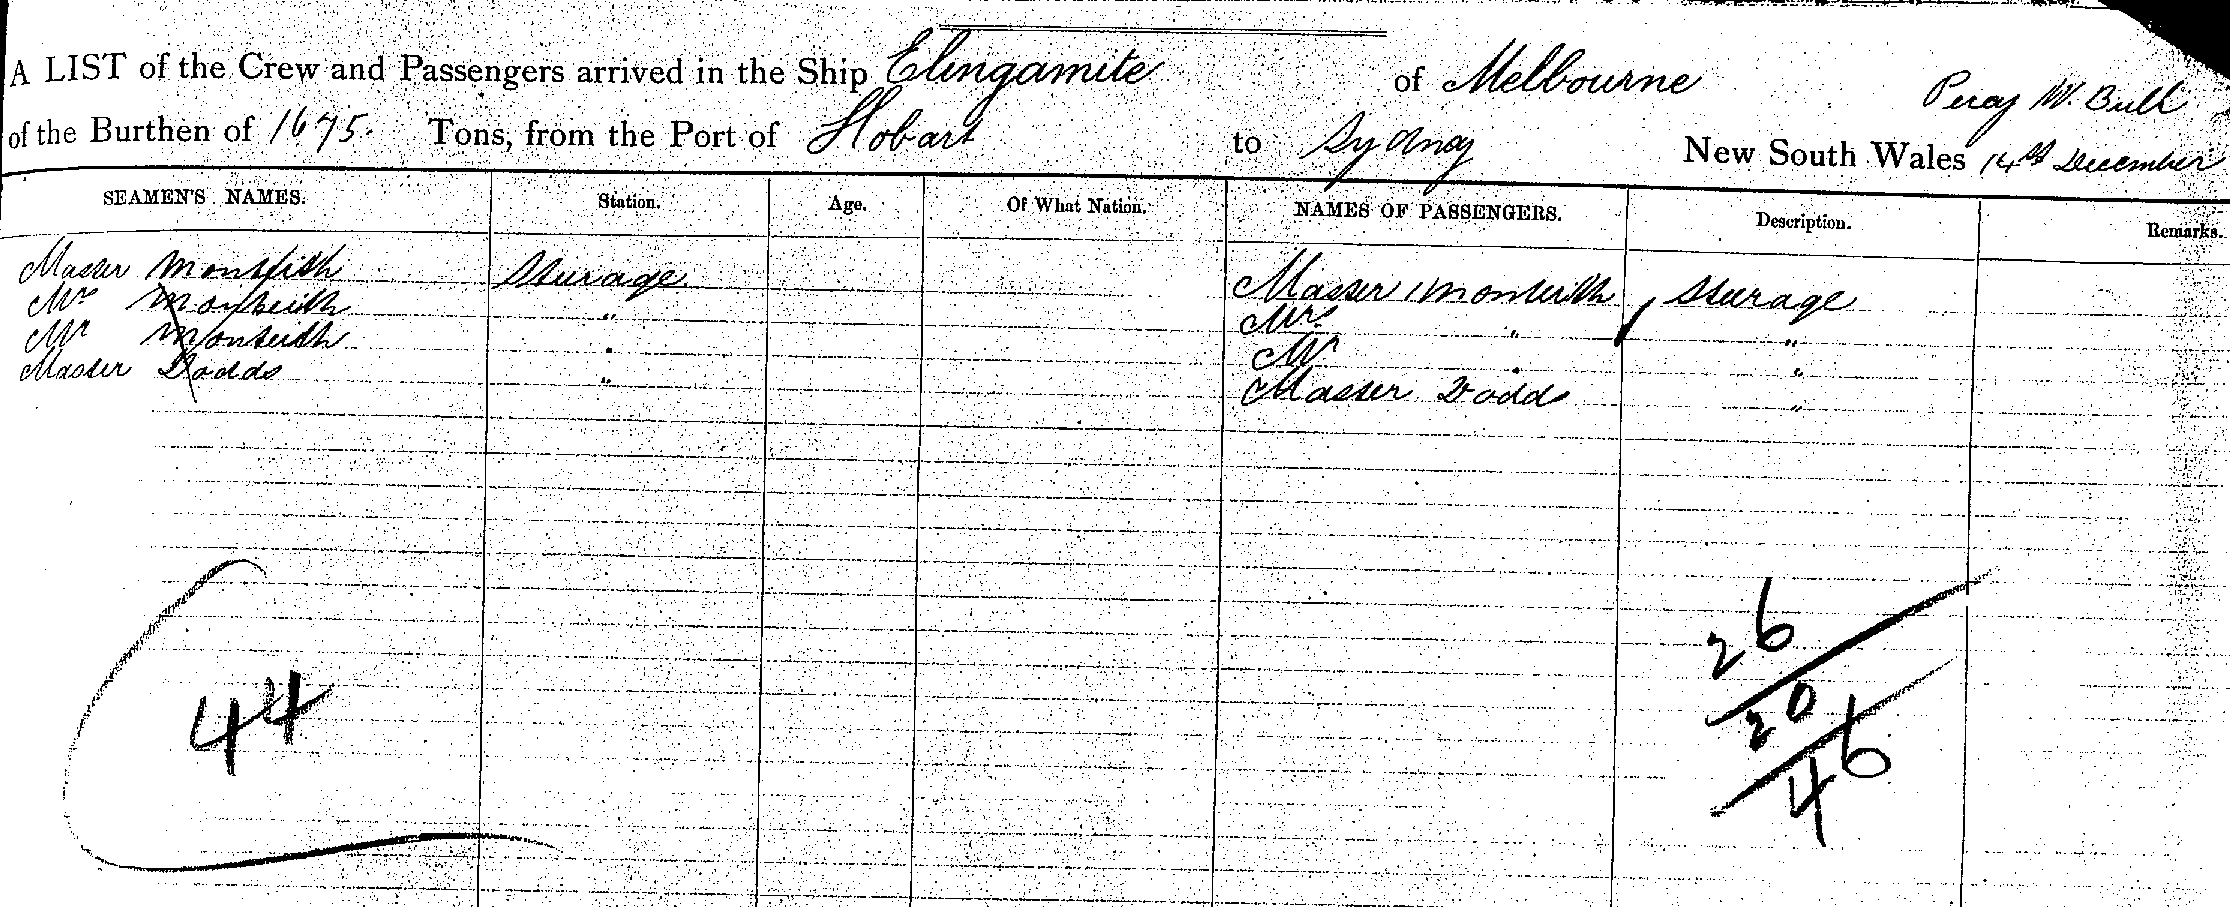 A LIST of the Crew and Passengers arrived in the Ship Elingamite of Melbourne Percy W. Bull
of the Burthen of 1675. Tons, from the Port of Hobart to Sydney New South Wales 14th December
SEAMEN'S NAMES. Station. Age. Of What Nation. NAMES OF PASSENGERS. Description. Remarks.
Master Monteith Steerage Master Monteith Steerage
Mrs Monteith " Mrs " "
Mr Monteith " Mr " "
Master Dodds " Master Dodds "
26
20
44 46